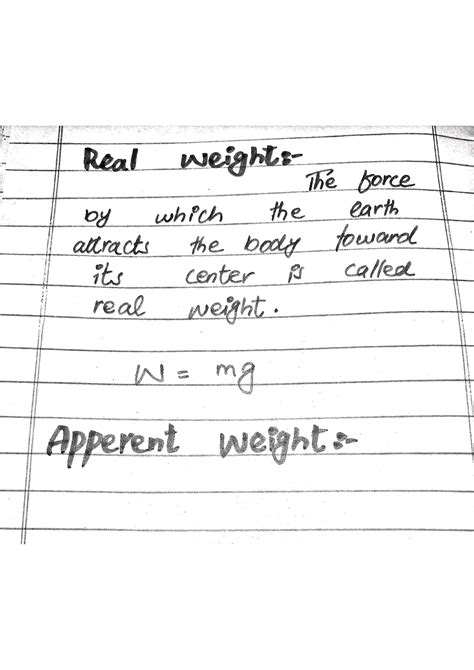 Real weight:-
The force
by which the earth
attracts the body toward
its center is called
real weight.
W = mg
Apperent weight:-